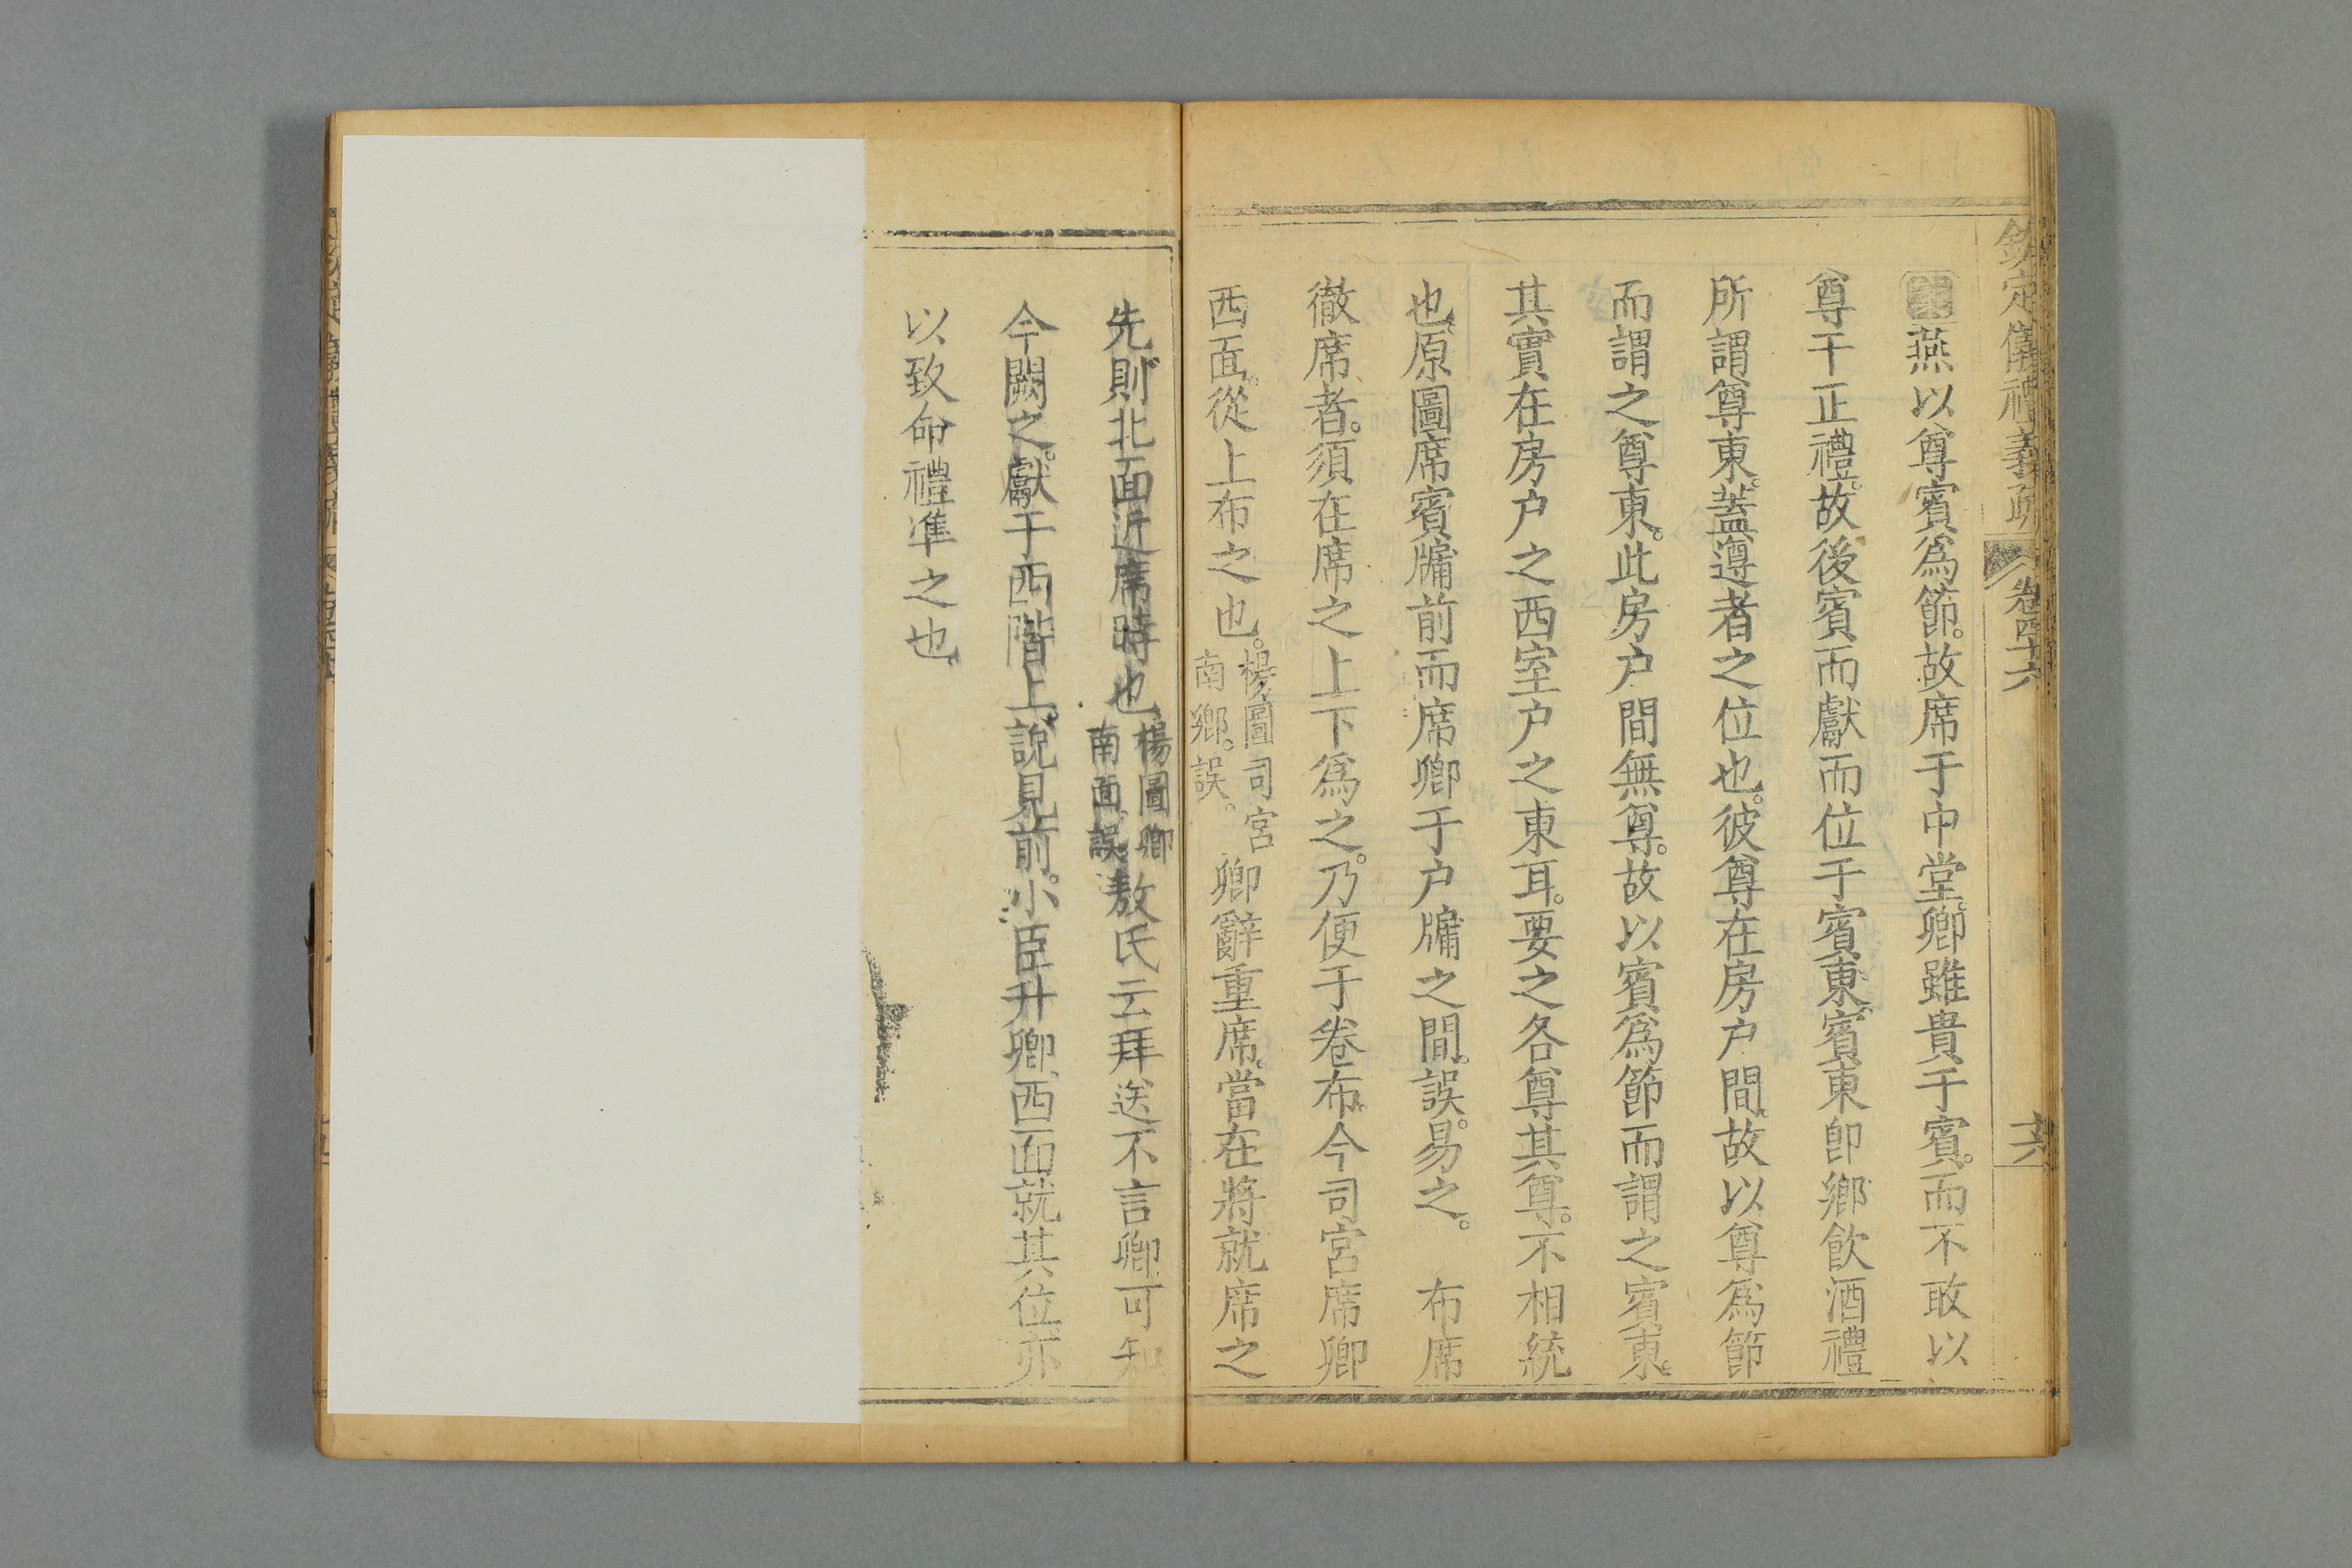 欽定儀禮義疏 卷四十六 十六
燕以尊賓爲節。故席于中堂。卿雖貴于賓。而不敢以
尊干正禮。故後賓而獻而位于賓東。賓東卽鄉飲酒禮
所謂尊東。蓋遵者之位也。彼尊在房户間。故以尊爲節
而謂之尊東。此房户間無尊。故以賓爲節而謂之賓東。
其實在房户之西室户之東耳。要之各尊其尊。不相統
也。原圖席賓牖前而席卿于户牖之間。誤。易之。 布席
徹席者。須在席之上下爲之。乃便于卷布。今司宮席卿
西面。從上布之也。楊圖司宮南鄉。誤。 卿辭重席。當在將就席之
先。則北面近席時也楊圖卿南面。誤。敖氏云拜送不言卿可知
今闕之。獻于西階上。說見前。小臣升卿西面就其位亦
以致命禮準之也